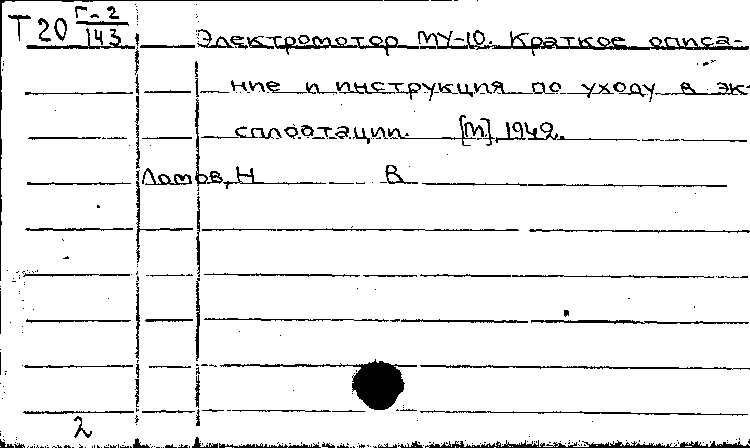 Т 20 Г-2/143 Электромотор МУ-10. Краткое описа-
ние и инструкция по уходу в эк-
сплоатации. [М], 1949.
Ломов, Н В
2